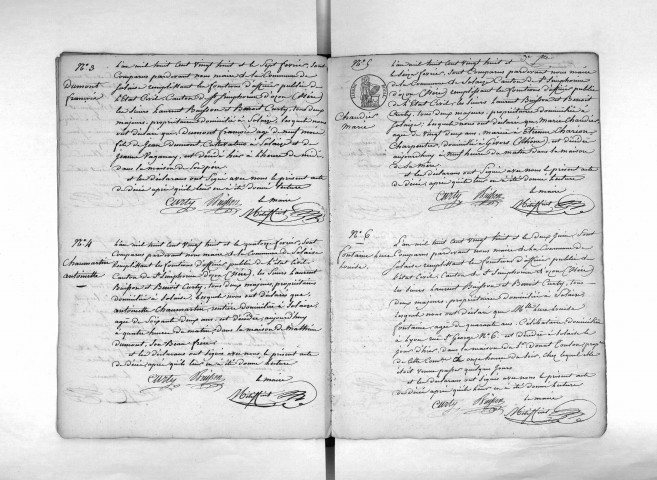 N.° 3
Dumont
françoise
L'an mil huit cent vingt huit et le Sept fevrier, Sont
Comparus pardevant nous maire de la Commune de
Salaise remplissant les fonctions d'officier public de
l'Etat Civil, Canton de St Simphorien d'ozon (Isère)
les Sieurs Laurent Buisson et Benoit Curty, tous deux
majeurs, propriétaires domiciliés à Salaise, lesquels nous
ont déclaré que, Dumont françoise agée de neuf mois
fille de Jean Dumont, Cultivateur à Salaise et de
Jeanne Paganay, est décédée hier à l'heure de midi
dans la maison de Son père.
et les déclarants ont Signé avec nous le présent acte
de décès, après qu'il leur en a été donné lecture
Curty Buisson le maire
N.° 4
Chaumartin
antoinette
L'an mil huit cent vingt huit et le quatorze fevrier, Sont
Comparus pardevant nous maire de la Commune de Salaise
remplissant les fonctions d'officier public de l'état Civil
Canton de St Simphorien d'ozon (Isère), les Sieurs Laurent
Buisson et Benoit Curty, tous deux majeurs, propriétaires
domiciliés à Salaise, lesquels nous ont déclaré que,
antoinette Chaumartin, rentière domiciliée à Salaise,
agée de Soixante deux ans, est décédée, aujourd'huy
à quatre heures du matin, dans la maison de Mathieu
dumont, Son Beau-frère.
et les déclarants ont Signé avec nous le présent acte
de décès, après qu'il leur en a été donné lecture
Curty Buisson le maire
N.° 5
Chardier
Marie
L'an mil huit cent vingt huit et
le Seize fevrier, Sont Comparus pardevant nous maire
de la Commune de Salaise, Canton de St Simphorien
d'ozon (Isère) remplissant les fonctions d'officier public
de l'Etat Civil, les Sieurs Laurent Buisson et Benoit
Curty, tous deux majeurs, propriétaires domiciliés à
Salaise, lesquels nous ont déclaré que, Marie Chardier
agée de vingt deux ans, mariée à Etienne
Charpentier, domicilié à Givors (Rhône) est décédée
aujourd'huy à neuf heures du matin dans la maison
de Sa Mère
et les déclarants ont Signé avec nous le présent acte
de décès après qu'il leur en a été donné lecture
Curty Buisson le maire
N.° 6
Fontaine
Louise
L'an mil huit cent vingt huit et le deux Juin, Sont
Comparus pardevant nous maire de la Commune de
Salaise remplissant les fonctions d'officier public de
l'Etat Civil, Canton de St Simphorien d'ozon (Isère)
les Sieurs Laurent Buisson et Benoit Curty, tous
deux majeurs, propriétaires domiciliés à Salaise,
lesquels nous ont déclaré que
fontaine, agée de quarante ans, Célibataire domiciliée
à Lyon rue St George N.° 6. est décédée à Salaise le
Jour d'hier, dans la maison de
de cette Comune à onze heures du Soir, chez laquelle elle
était venue passer quelques Jours.
et les déclarants ont Signé avec nous le présent acte
de décès après qu'il leur en a été donné lecture
Curty Buisson le maire